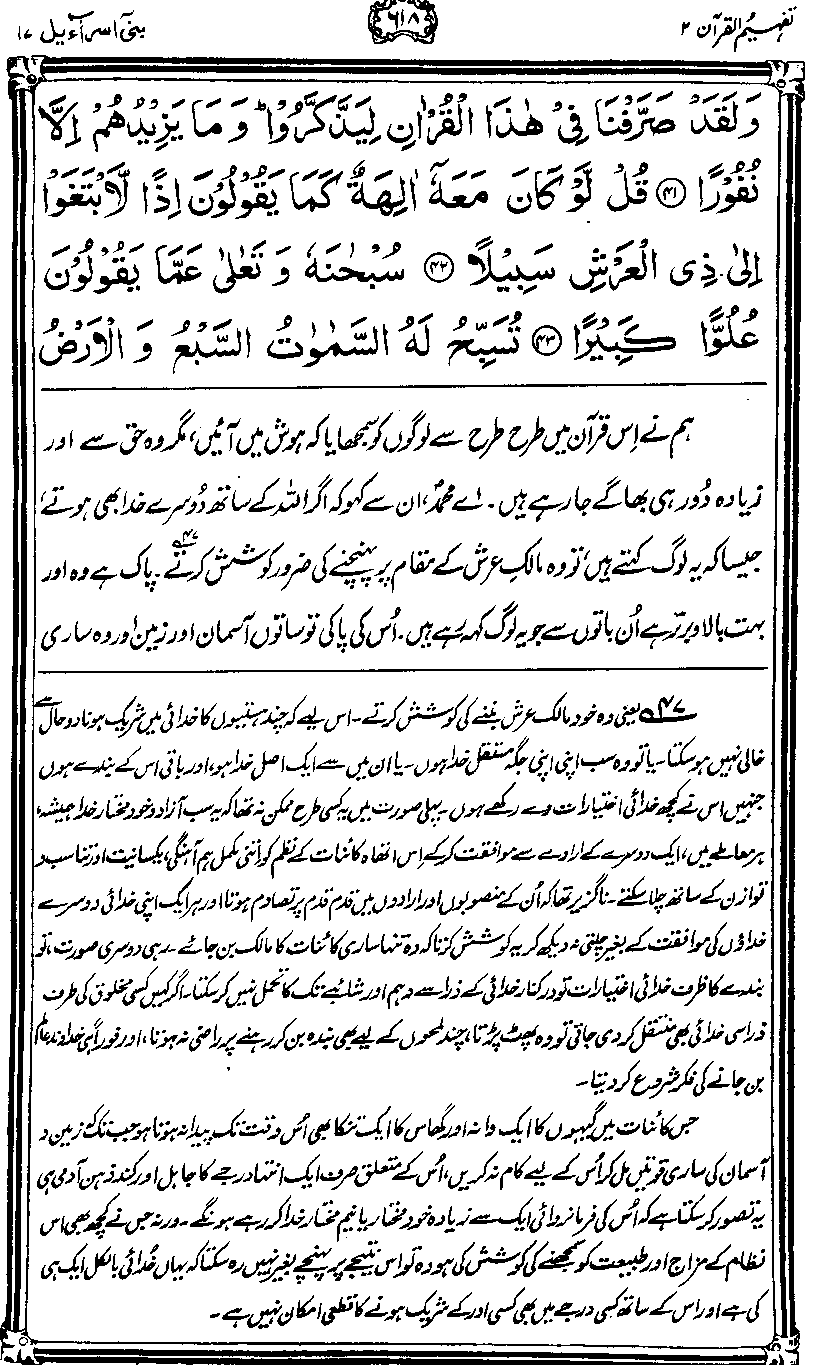 تفہیم القرآن ۲
۶۱۸
بنیٓ اسرآءیل ۱۷
وَلَقَدْ صَرَّفْنَا فِیْ هٰذَا الْقُرْاٰنِ لِیَذَّكَّرُوْا ؕ وَ مَا یَزِیْدُهُمْ اِلَّا
نُفُوْرًا ﴿۴۱﴾ قُلْ لَّوْ كَانَ مَعَهٗۤ اٰلِهَةٌ كَمَا یَقُوْلُوْنَ اِذًا لَّابْتَغَوْا
اِلٰى ذِی الْعَرْشِ سَبِیْلًا ﴿۴۲﴾ سُبْحٰنَهٗ وَ تَعٰلٰى عَمَّا یَقُوْلُوْنَ
عُلُوًّا كَبِیْرًا ﴿۴۳﴾ تُسَبِّحُ لَهُ السَّمٰوٰتُ السَّبْعُ وَ الْاَرْضُ
ہم نے اِس قرآن میں طرح طرح سے لوگوں کو سمجھایا کہ ہوش میں آئیں، مگر وہ حق سے اور
زیادہ دُور ہی بھاگے جا رہے ہیں۔ اے محمدؐ، ان سے کہو کہ اگر اللہ کے ساتھ دُوسرے خدا بھی ہوتے،
جیسا کہ یہ لوگ کہتے ہیں، تو وہ مالکِ عرش کے مقام پر پہنچنے کی ضرور کوشش کرتے۴۷۔ پاک ہے وہ اور
بہت بالا و برتر ہے اُن باتوں سے جو یہ لوگ کہہ رہے ہیں۔ اُس کی پاکی تو ساتوں آسمان اور زمین اور وہ ساری
۴۷ یعنی وہ خود مالک عرش بننے کی کوشش کرتے۔ اس لیے کہ چند ہستیوں کا خدائی میں شریک ہونا دو حال سے
خالی نہیں ہو سکتا۔ یا تو وہ سب اپنی اپنی جگہ مستقل خدا ہوں۔ یا ان میں سے ایک اصل خدا ہو، اور باقی اس کے بندے ہوں
جنہیں اس نے کچھ خدائی اختیارات دے رکھے ہوں۔ پہلی صورت میں یہ کسی طرح ممکن نہ تھا کہ یہ سب آزاد و خود مختار خدا ہمیشہ،
ہر معاملے میں، ایک دوسرے کے ارادے سے موافقت کر کے اِس اتھاہ کائنات کے نظم کو اتنی مکمل ہم آہنگی، یکسانیت اور تناسب و
توازن کے ساتھ چلا سکتے۔ ناگزیر تھا کہ اُن کے منصوبوں اور ارادوں میں قدم قدم پر تصادم ہوتا اور ہر ایک اپنی خدائی دوسرے
خداؤں کی موافقت کے بغیر چلتی نہ دیکھ کر یہ کوشش کرتا کہ وہ تنہا ساری کائنات کا مالک بن جائے۔ رہی دوسری صورت، تو
بندے کا ظرف خدائی اختیارات تو درکنار خدائی کے ذرا سے وہم اور شائبے تک کا تحمل نہیں کر سکتا۔ اگر کہیں کسی مخلوق کی طرف
ذرا سی خدائی بھی منتقل کر دی جاتی تو وہ پھٹ پڑتا، چند لمحوں کے لیے بھی بندہ بن کر رہنے پر راضی نہ ہوتا، اور فوراً ہی خداوندِ عالم
بن جانے کی فکر شروع کر دیتا۔
جس کائنات میں گیہوں کا ایک دانہ اور گھاس کا ایک تنکا بھی اُس وقت تک پیدا نہ ہوتا ہو جب تک کہ زمین و
آسمان کی ساری قوتیں مل کر اُس کے لیے کام نہ کریں، اُس کے متعلق صرف ایک انتہا درجے کا جاہل اور کند ذہن آدمی ہی
یہ تصور کر سکتا ہے کہ اُس کی فرمانروائی ایک سے زیادہ خود مختار یا نیم مختار خدا کر رہے ہونگے۔ ورنہ جس نے کچھ بھی اس
نظام کے مزاج اور طبیعت کو سمجھنے کی کوشش کی ہو وہ تو اس نتیجے پر پہنچے بغیر نہیں رہ سکتا کہ یہاں خدائی بالکل ایک ہی
کی ہے اور اس کے ساتھ کسی درجے میں بھی کسی اور کے شریک ہونے کا قطعی امکان نہیں ہے۔